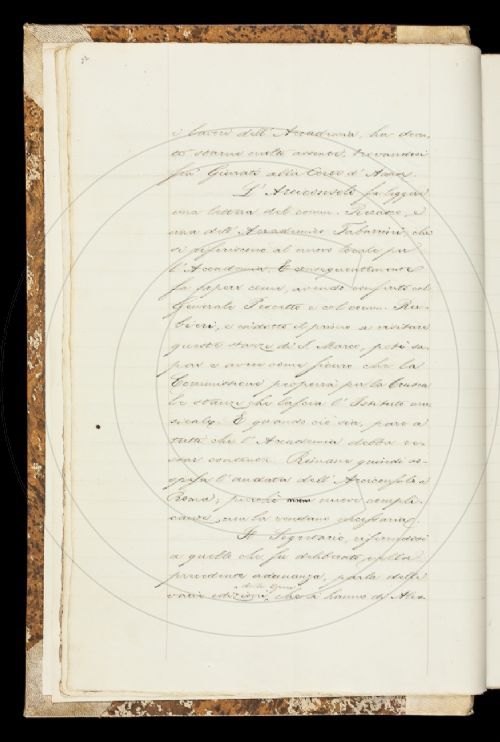 i lavori dell'Accademia, ha dovu,
to starne molto assente, trovandosi
fra' Giurati alla Corte d'Assise.
L'Arciconsolo fa leggere
una lettera del comm. Peccato, e
una dell'Accademico Tabarrini, che
si riferiscono al nuovo locale per
l'Accademia. E conseguentemente
fa sapere come, avendo conferito col
Generale Pescetto e col comm. Bar-
bieri, e condotto il primo a visitare
queste stanze di S. Marco, potè sa-
pere e avere come sicuro che la
Commissione proporrà per la Crusca
le stanze che lascia l'Istituto mu-
sicale. E quando ciò sia, pare a
tutti che l'Accademia debba re-
star contenta. Rimane quindi so-
spesa l'andata dell'Arciconsolo a
Roma, perchè nuove compli-
canze non la rendano necessaria.
Il Segretario, riferendosi
a quello che fu deliberato nella
precedente adunanza, parla delle
varie edizioni che si hanno di Ales-